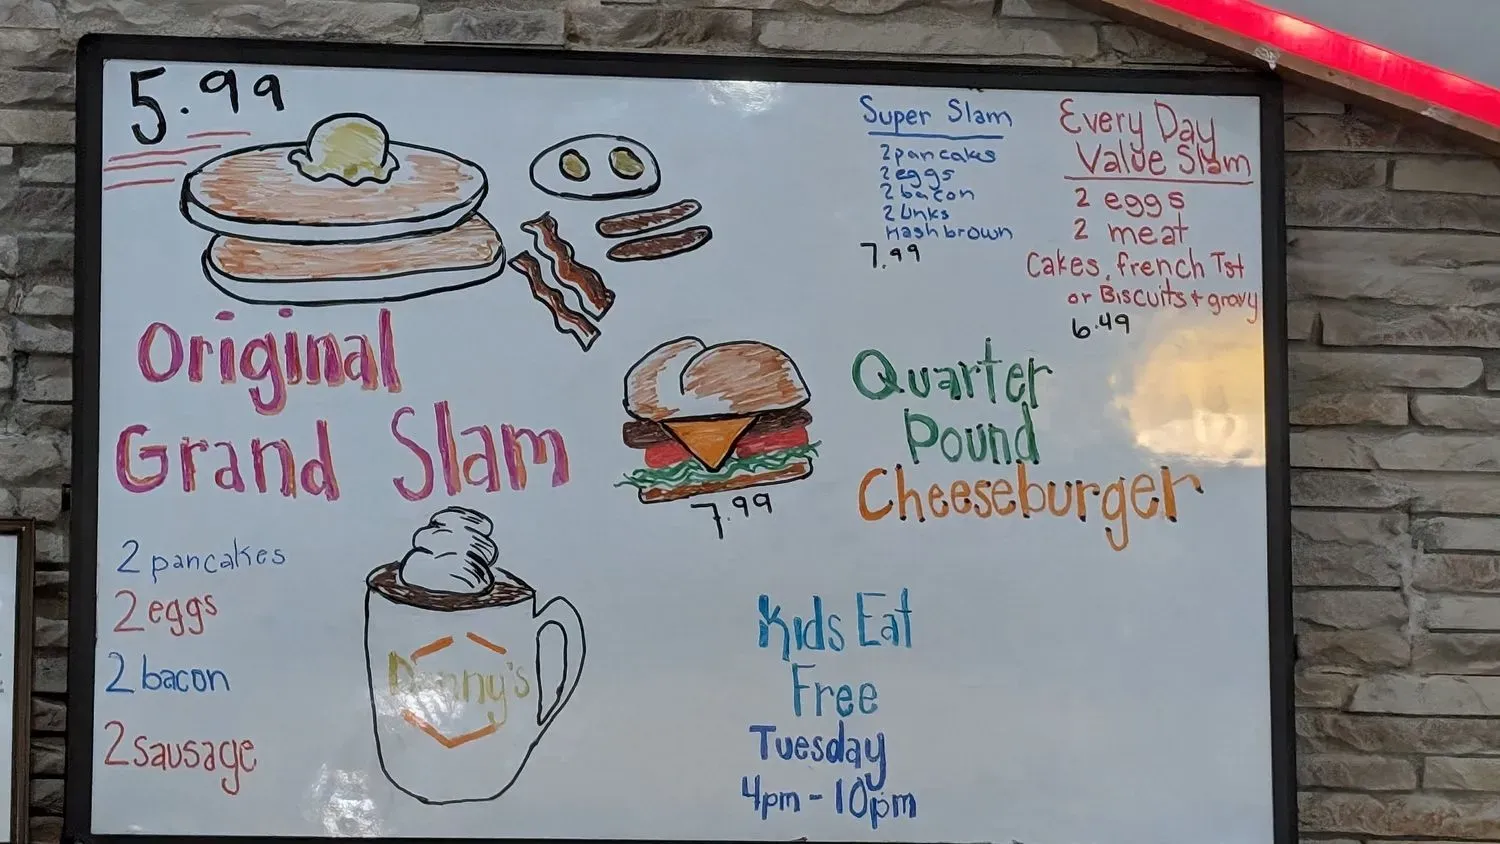 5.99
Original
Grand Slam
2 pancakes
2 eggs
2 bacon
2 sausage
Denny's
Super Slam
2 pancakes
2 eggs
2 bacon
2 Links
Hashbrown
7.99
Every Day
Value Slam
2 eggs
2 meat
Cakes, french Tst
or Biscuits + gravy
6.49
Quarter
Pound
Cheeseburger
7.99
Kids Eat
Free
Tuesday
4pm - 10pm